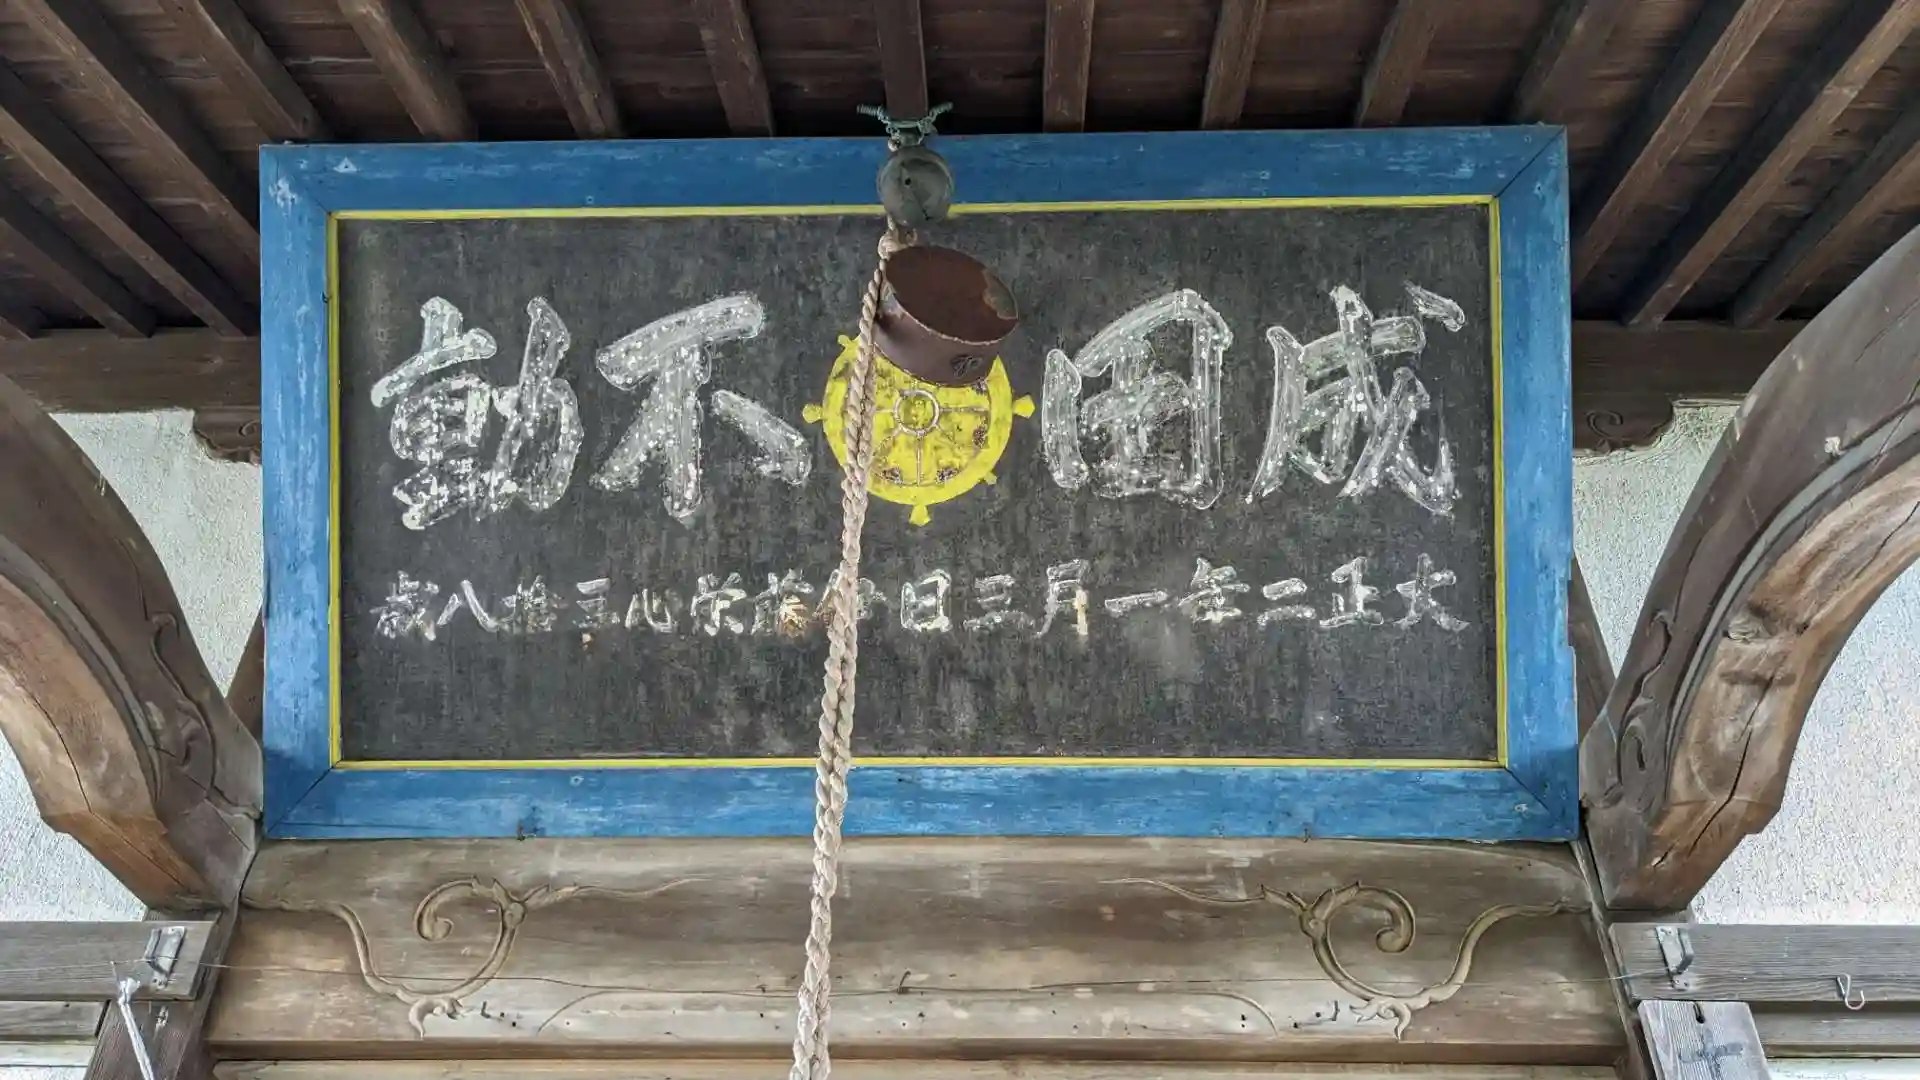 成田不動
大正二年一月三日伊藤栄心三拾八歳